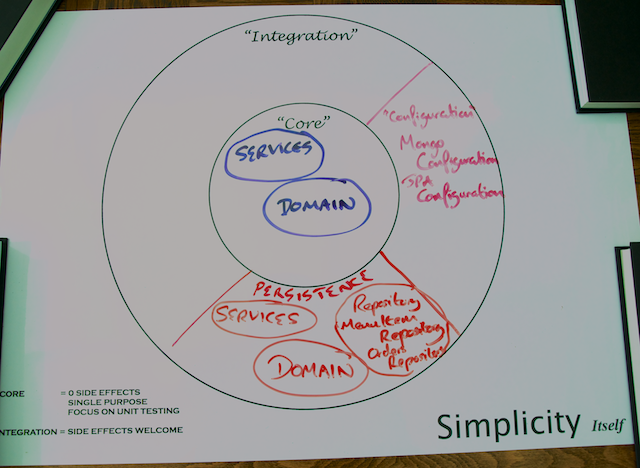 "Integration"
"Core"
SERVICES
DOMAIN
"Configuration"
Mongo
Configuration
JPA
Configuration
PERSISTENCE
SERVICES
DOMAIN
Repository
MenuItem
Repository
Orders
Repository
CORE = 0 SIDE EFFECTS
SINGLE PURPOSE
FOCUS ON UNIT TESTING
INTEGRATION = SIDE EFFECTS WELCOME
Simplicity Itself